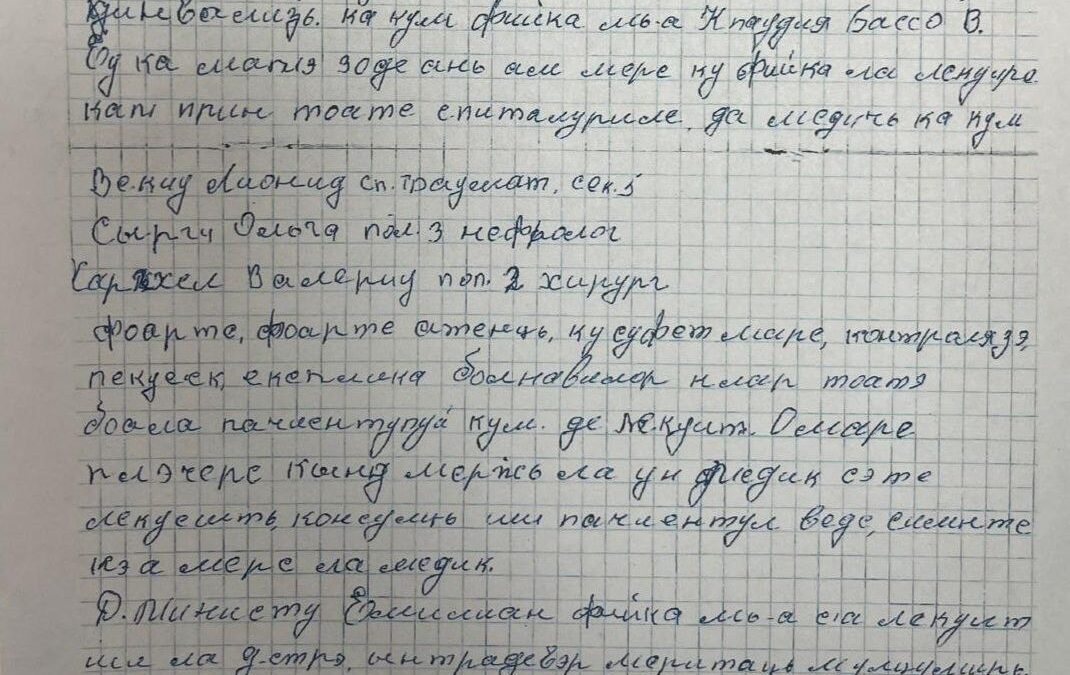 дин вализь. ка кум фийка мь-а Клаудия Бассо В.
Ёу ка мамэ зоде ань ам мере ку фийка ла лекуире
кап прин тоате епиталуриле, да медичь ка кум
Векиу Лионид сп. траумат. сек. 5
Сырги Ольга пол. 3 нефролог
Харжел Валериу пол. 2 хирург
фоарте, фоарте атенць, ку суфлет маре, контролязэ,
лекуеск, експликэ болнавилор клар тоатэ
боала пачиентулуй кум. де лекуит. О маре
плэчере кынд мержь ла ун медик сэ те
лекуешть, консулць ши пачиентул веде, симте
кэ а мере ла медик.
Д. Минжету Емилиан фийка мь-а с-а лекуит
ши ла Д-стрэ, ынтрадевэр меритаць мулцумирь.